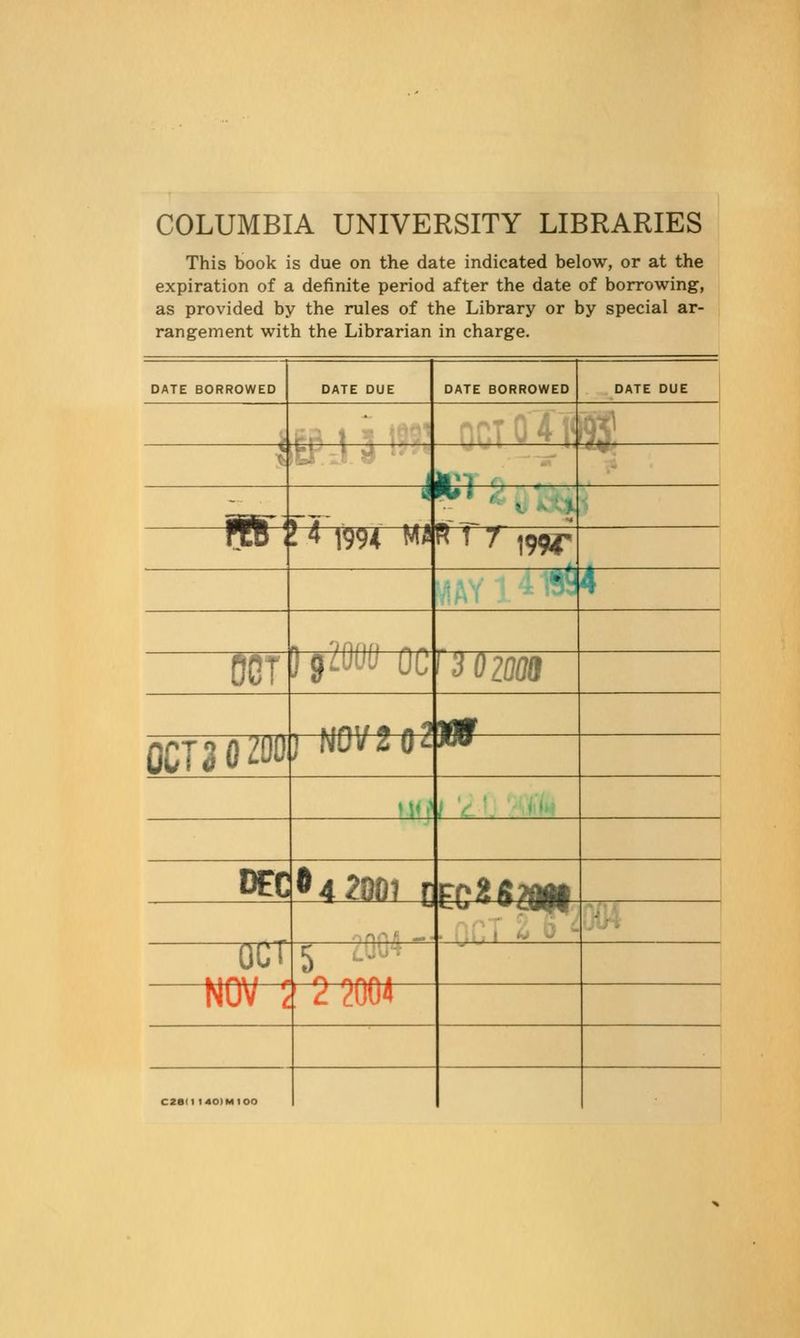 COLUMBIA UNIVERSITY LIBRARIES
This book is due on the date indicated below, or at the
expiration of a definite period after the date of borrowing,
as provided by the rules of the Library or by special ar-
rangement with the Librarian in charge.
DATE BORROWED DATE DUE DATE BORROWED DATE DUE
SEP 13 1993 OCT 04 1993
OCT 2
FEB 24 1994 MAR 17 1994
MAY 14 1994
OCT 09 2000 OCT 30 2000
OCT 30 2000 NOV 20
DEC 04 2001 DEC 26
OCT 5 2004 OCT 26 2004
NOV 22 2004
C28(1140)M100